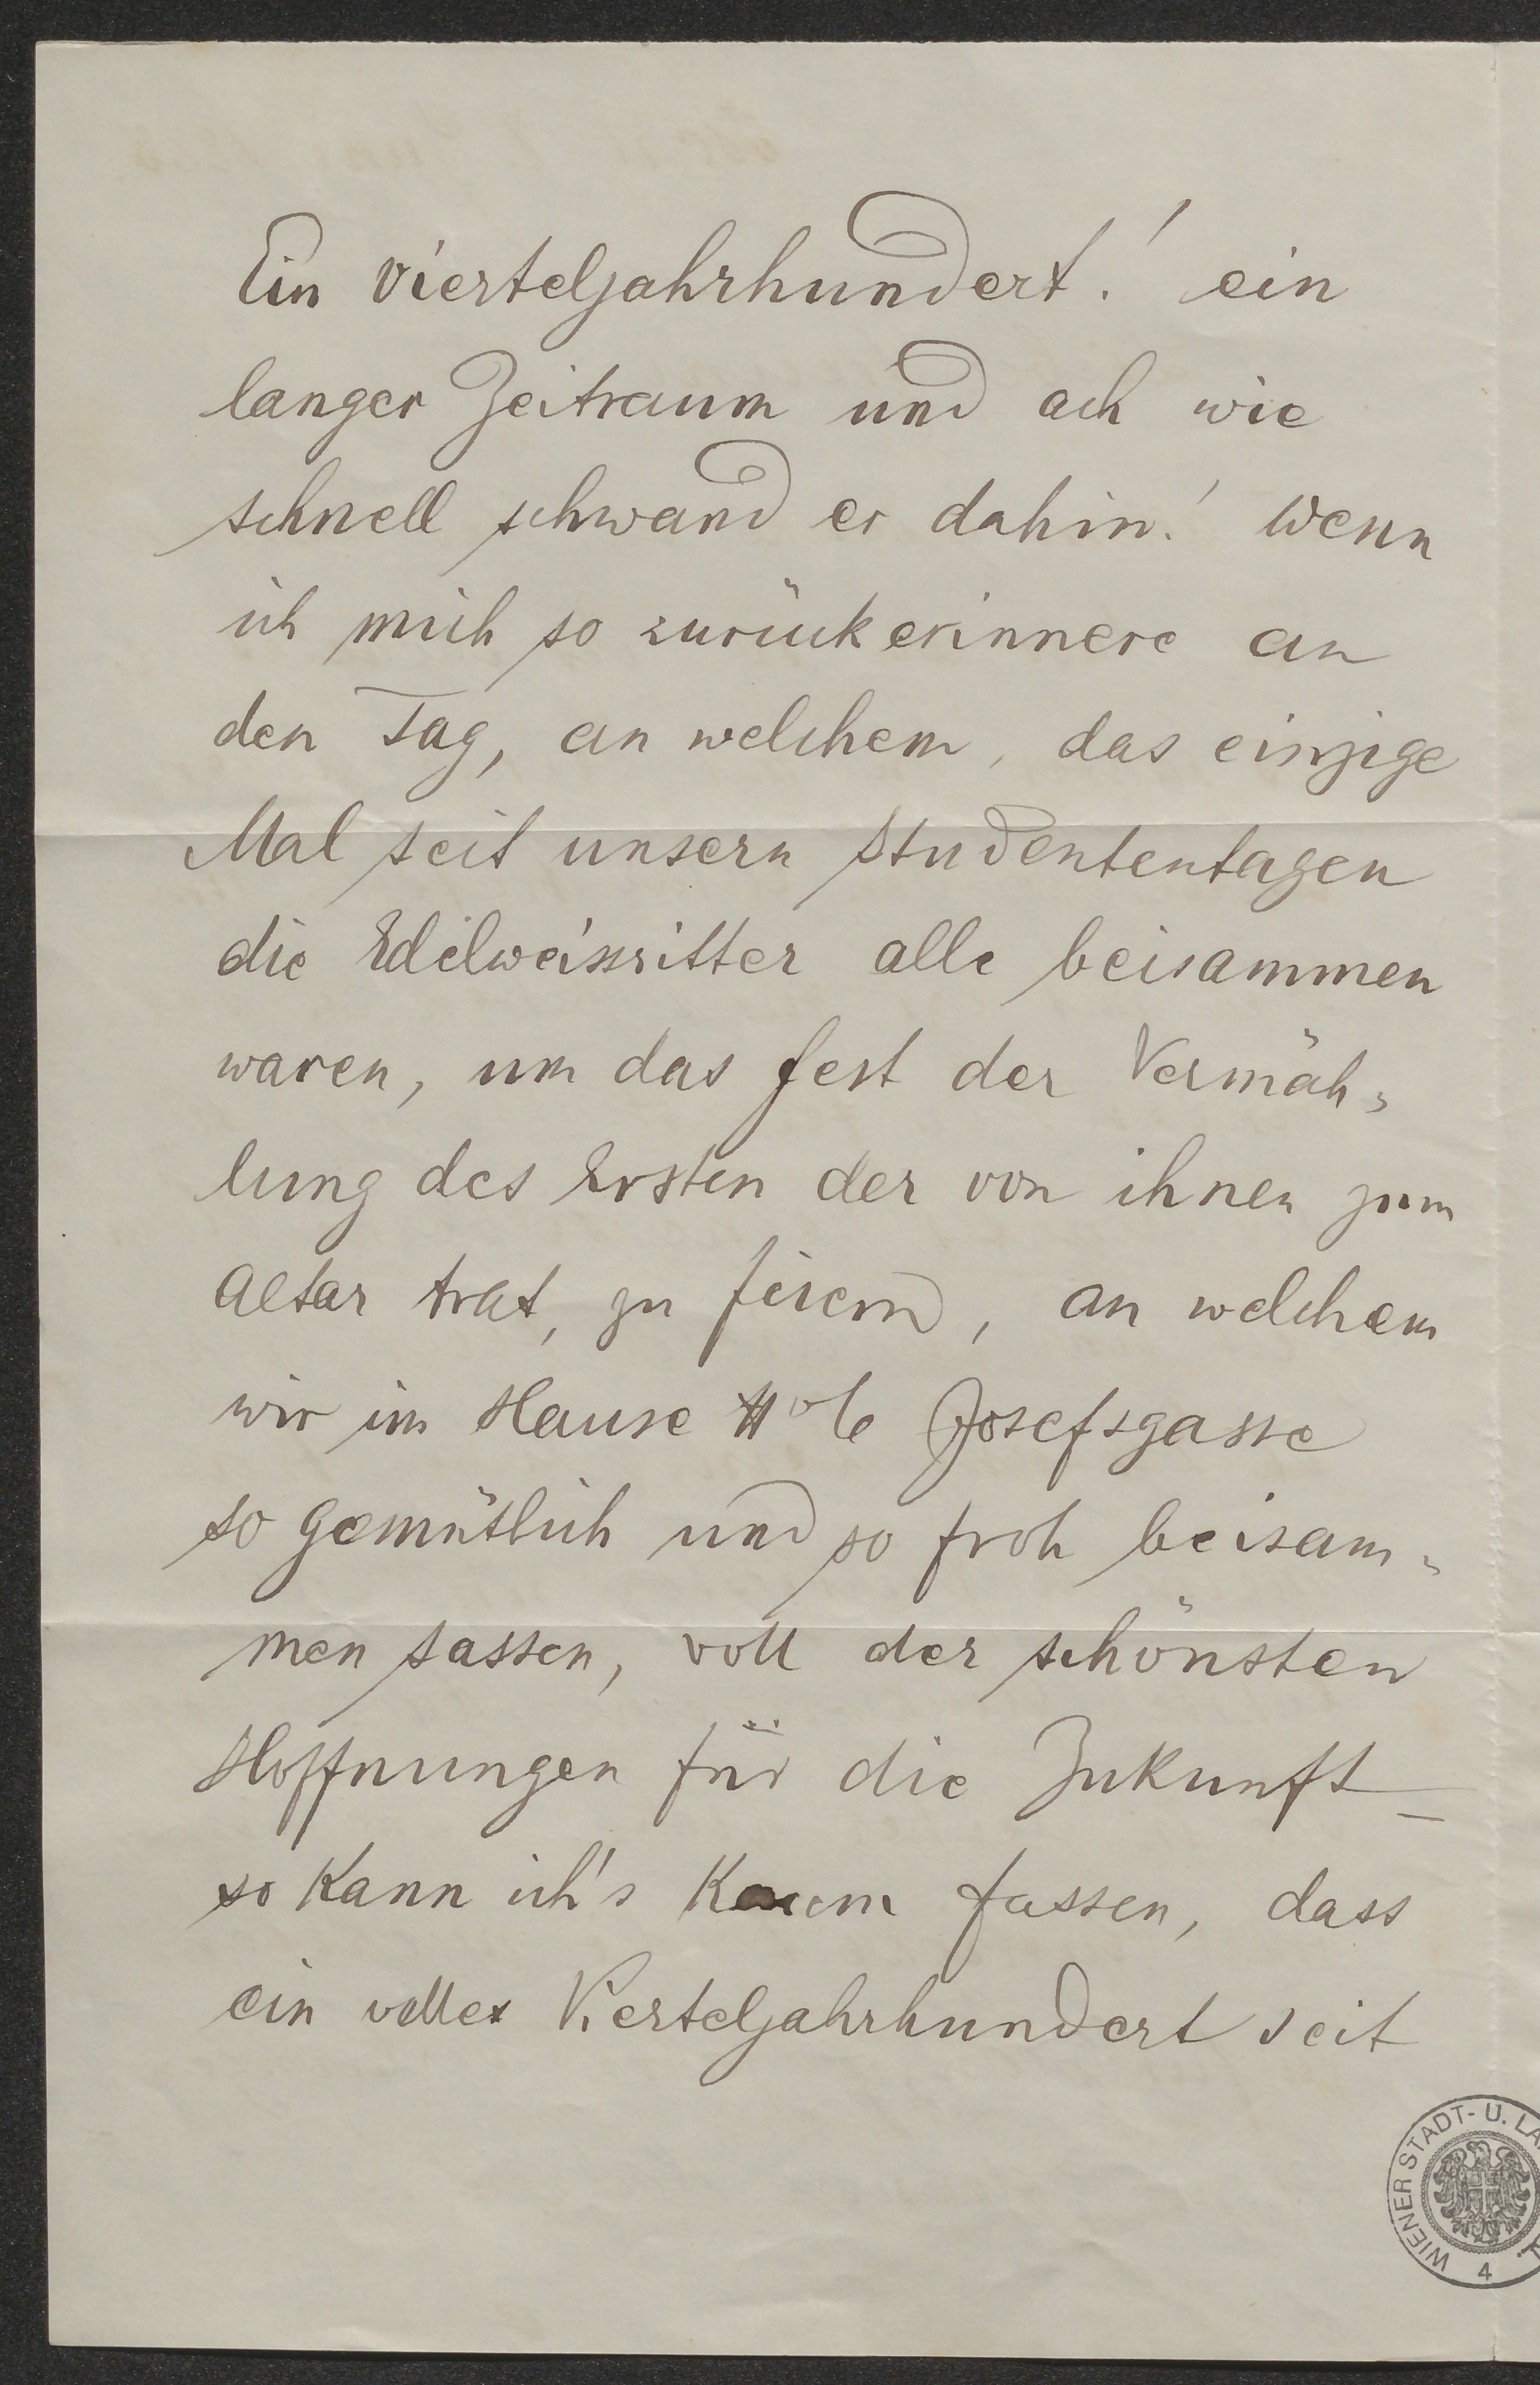 Ein Vierteljahrhundert! ein
langer Zeitraum und ach wie
schnell schwand er dahin! Wenn
ich mich so zurückerinnere an
den Tag, an welchem, das einzige
Mal seit unsern Studententagen
die Edelweissritter alle beisammen
waren, um das Fest der Vermäh-
lung des Ersten der von ihnen zum
Altar trat, zu feiern, an welchem
wir im Hause Josefsgasse
so gemütlich und so froh beisam-
men sassen, voll der schönsten
Hoffnungen für die Zukunft _
so kann ich's kaum fassen, dass
ein volles Vierteljahrhundert seit
WIENER STADT- U. LA
4